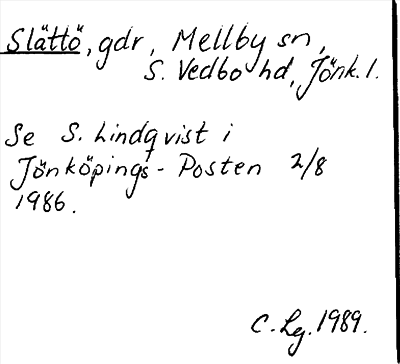 Slättö, gdr, Mellby sn,
S. Vedbo hd, Jönk. l.
Se S. Lindqvist i
Jönköpings-Posten 2/8
1986.
C. Lg. 1989.